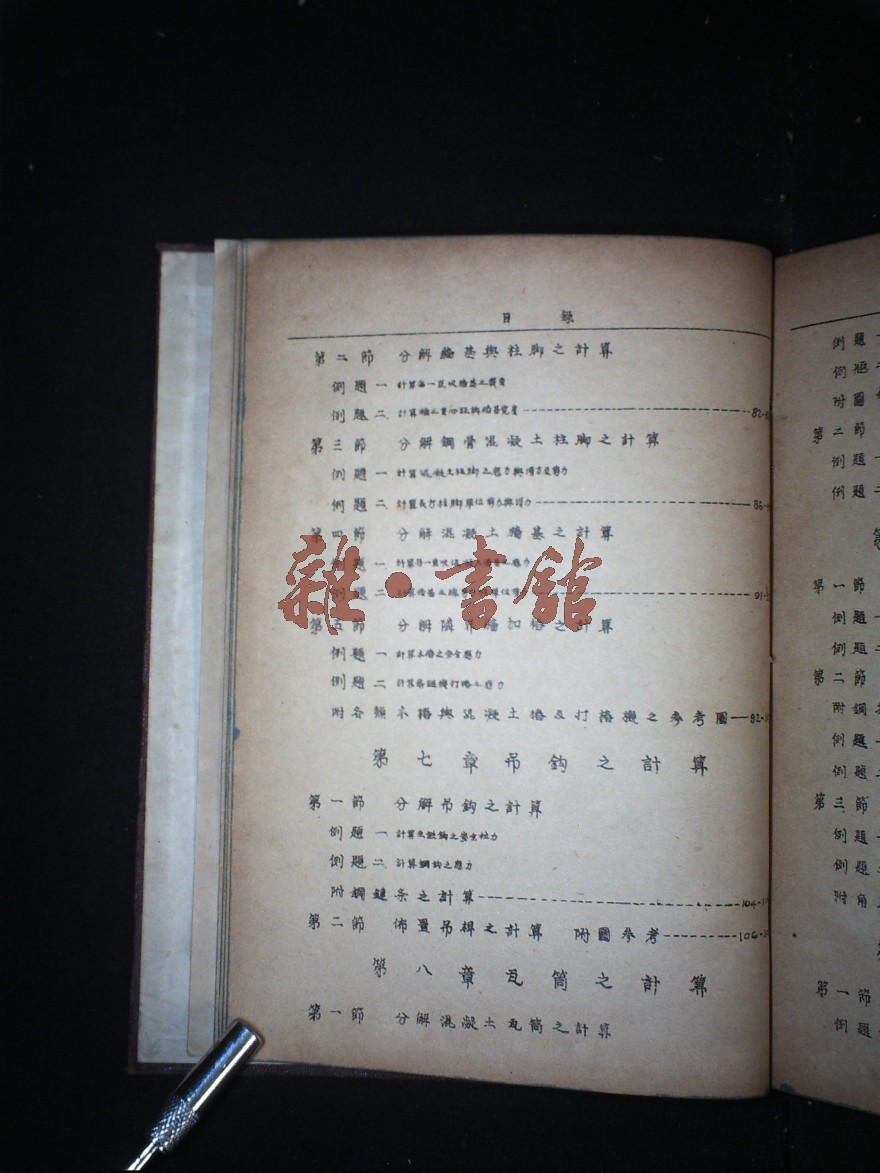 目錄
第二節 分解牆基與柱脚之計算
例題一 計算每一直呎牆基之寬度
例題二 計算牆之重心致擴牆基寬度 82-
第三節 分解鋼骨混凝土柱脚之計算
例題一 計算混凝土柱脚之應力與彎力及剪力
例題二 計算長方柱脚單位剪力與彎力 86-
第四節 分解混凝土牆基之計算
例題一 計算每一直呎混凝土牆基之應力
例題二 計算牆基 91-
第五節 分解 牆加樁之計算
例題一 計算木樁之安全應力
例題二 計算 機打樁之應力
附各類木樁與混凝土樁及打樁機之參考圖 92-
第七章吊鈎之計算
第一節 分解吊鈎之計算
例題一 計算 鈎之安全拉力
例題二 計算鋼鈎之應力
附鋼鏈条之計算 104-
第二節 佈置吊桿之計算 附圖參考 106-
第八章瓦筒之計算
第一節 分解混凝土瓦筒之計算
例題一
例題二
附圖
第二節
例題一
例題二
第一節
例題一
例題二
第二節
附鋼
例題一
例題二
第三節
例題一
例題二
附角
第一節
例題一
雜·書館